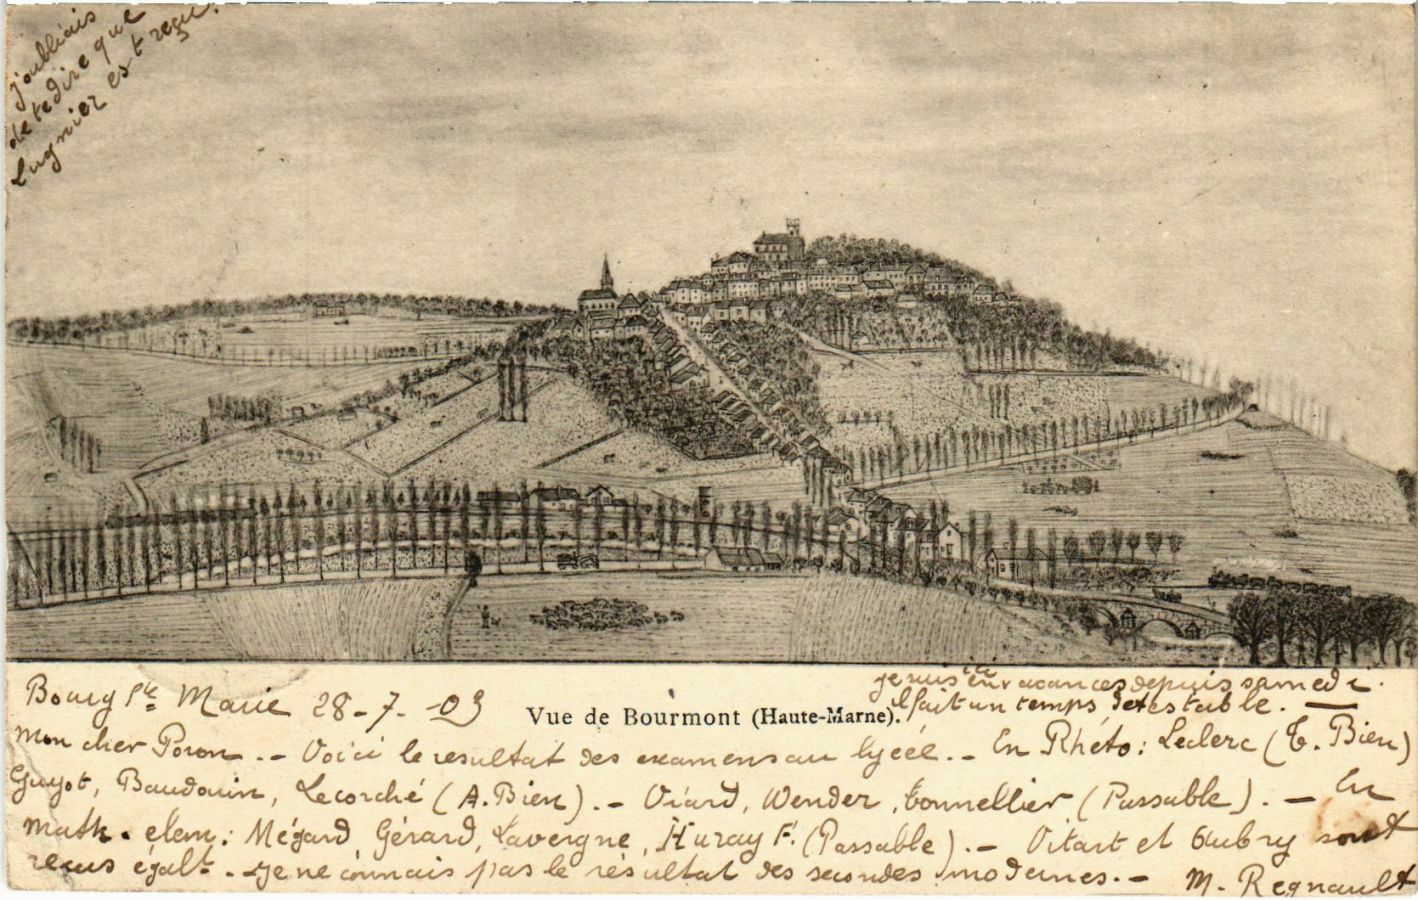 j'oubliais
de te dire que
Lugnier est reçu.
Bourg Ste Marie 28-7-03
je suis ici en vacances depuis samedi.
il fait un temps détestable. —
Vue de Bourmont (Haute-Marne).
Mon cher Poron. - Voici le resultat des examens au lycée. - En Rhéto: Leclerc (T. Bien)
Guyot, Baudouin, Lecorché (A. Bien). - Viard, Wender, tonnellier (Passable). - En
Math. elem.: Mégard, Gérard, Lavergne, Huray F. (Passable). - Vitart et Aubry sont
recus égalt. - Je ne connais pas le résultat des secondes modernes. - M. Regnault